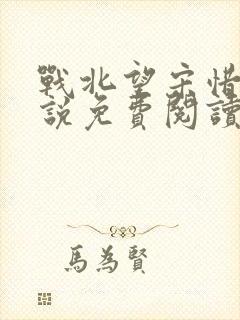 戰北望宋惜
說免費閱讀
馬為賢